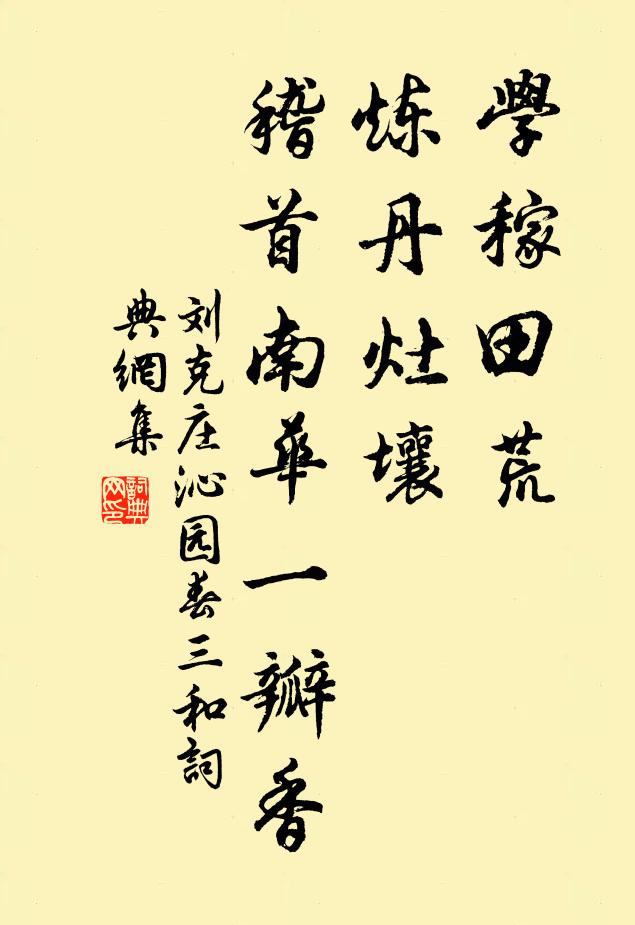 學稼田荒
炼丹灶壤
稽首南華一瓣香
刘克庄沁园春三和詞
典網集
詞典
网印